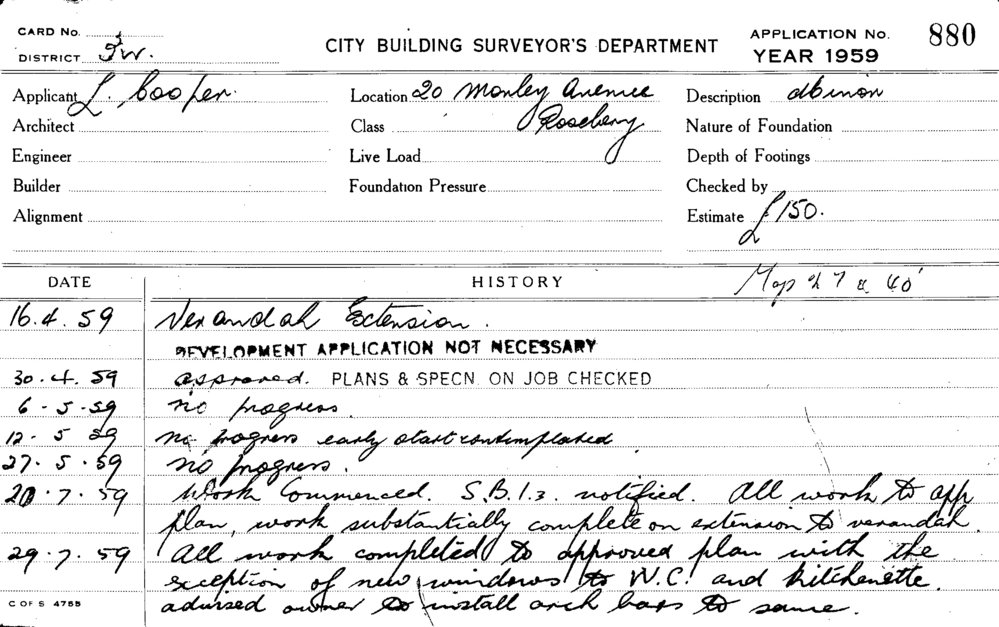 CARD No. 3
DISTRICT Sw.
CITY BUILDING SURVEYOR'S DEPARTMENT
APPLICATION No. 880
YEAR 1959
Applicant L. Cooper. Location 20 Morley Avenue Description
Architect Class Rosebery Nature of Foundation
Engineer Live Load Depth of Footings
Builder Foundation Pressure Checked by
Alignment Estimate £150.
DATE HISTORY Map 27 & 40'
16.4.59 Verandah Extension.
DEVELOPMENT APPLICATION NOT NECESSARY
30.4.59 approved. PLANS & SPECN. ON JOB CHECKED
6-5-59 no progress.
12.5 59 no progress early start contemplated
27.5.59 no progress.
20.7.59 Work Commenced. S.B.I.3. notified. All work to app
plan, work substantially complete on extension to verandah.
29.7.59 All work completed to approved plan with the
exception of new windows to W.C. and kitchenette.
advised owner to install arch bars to same.
C OF S 4755